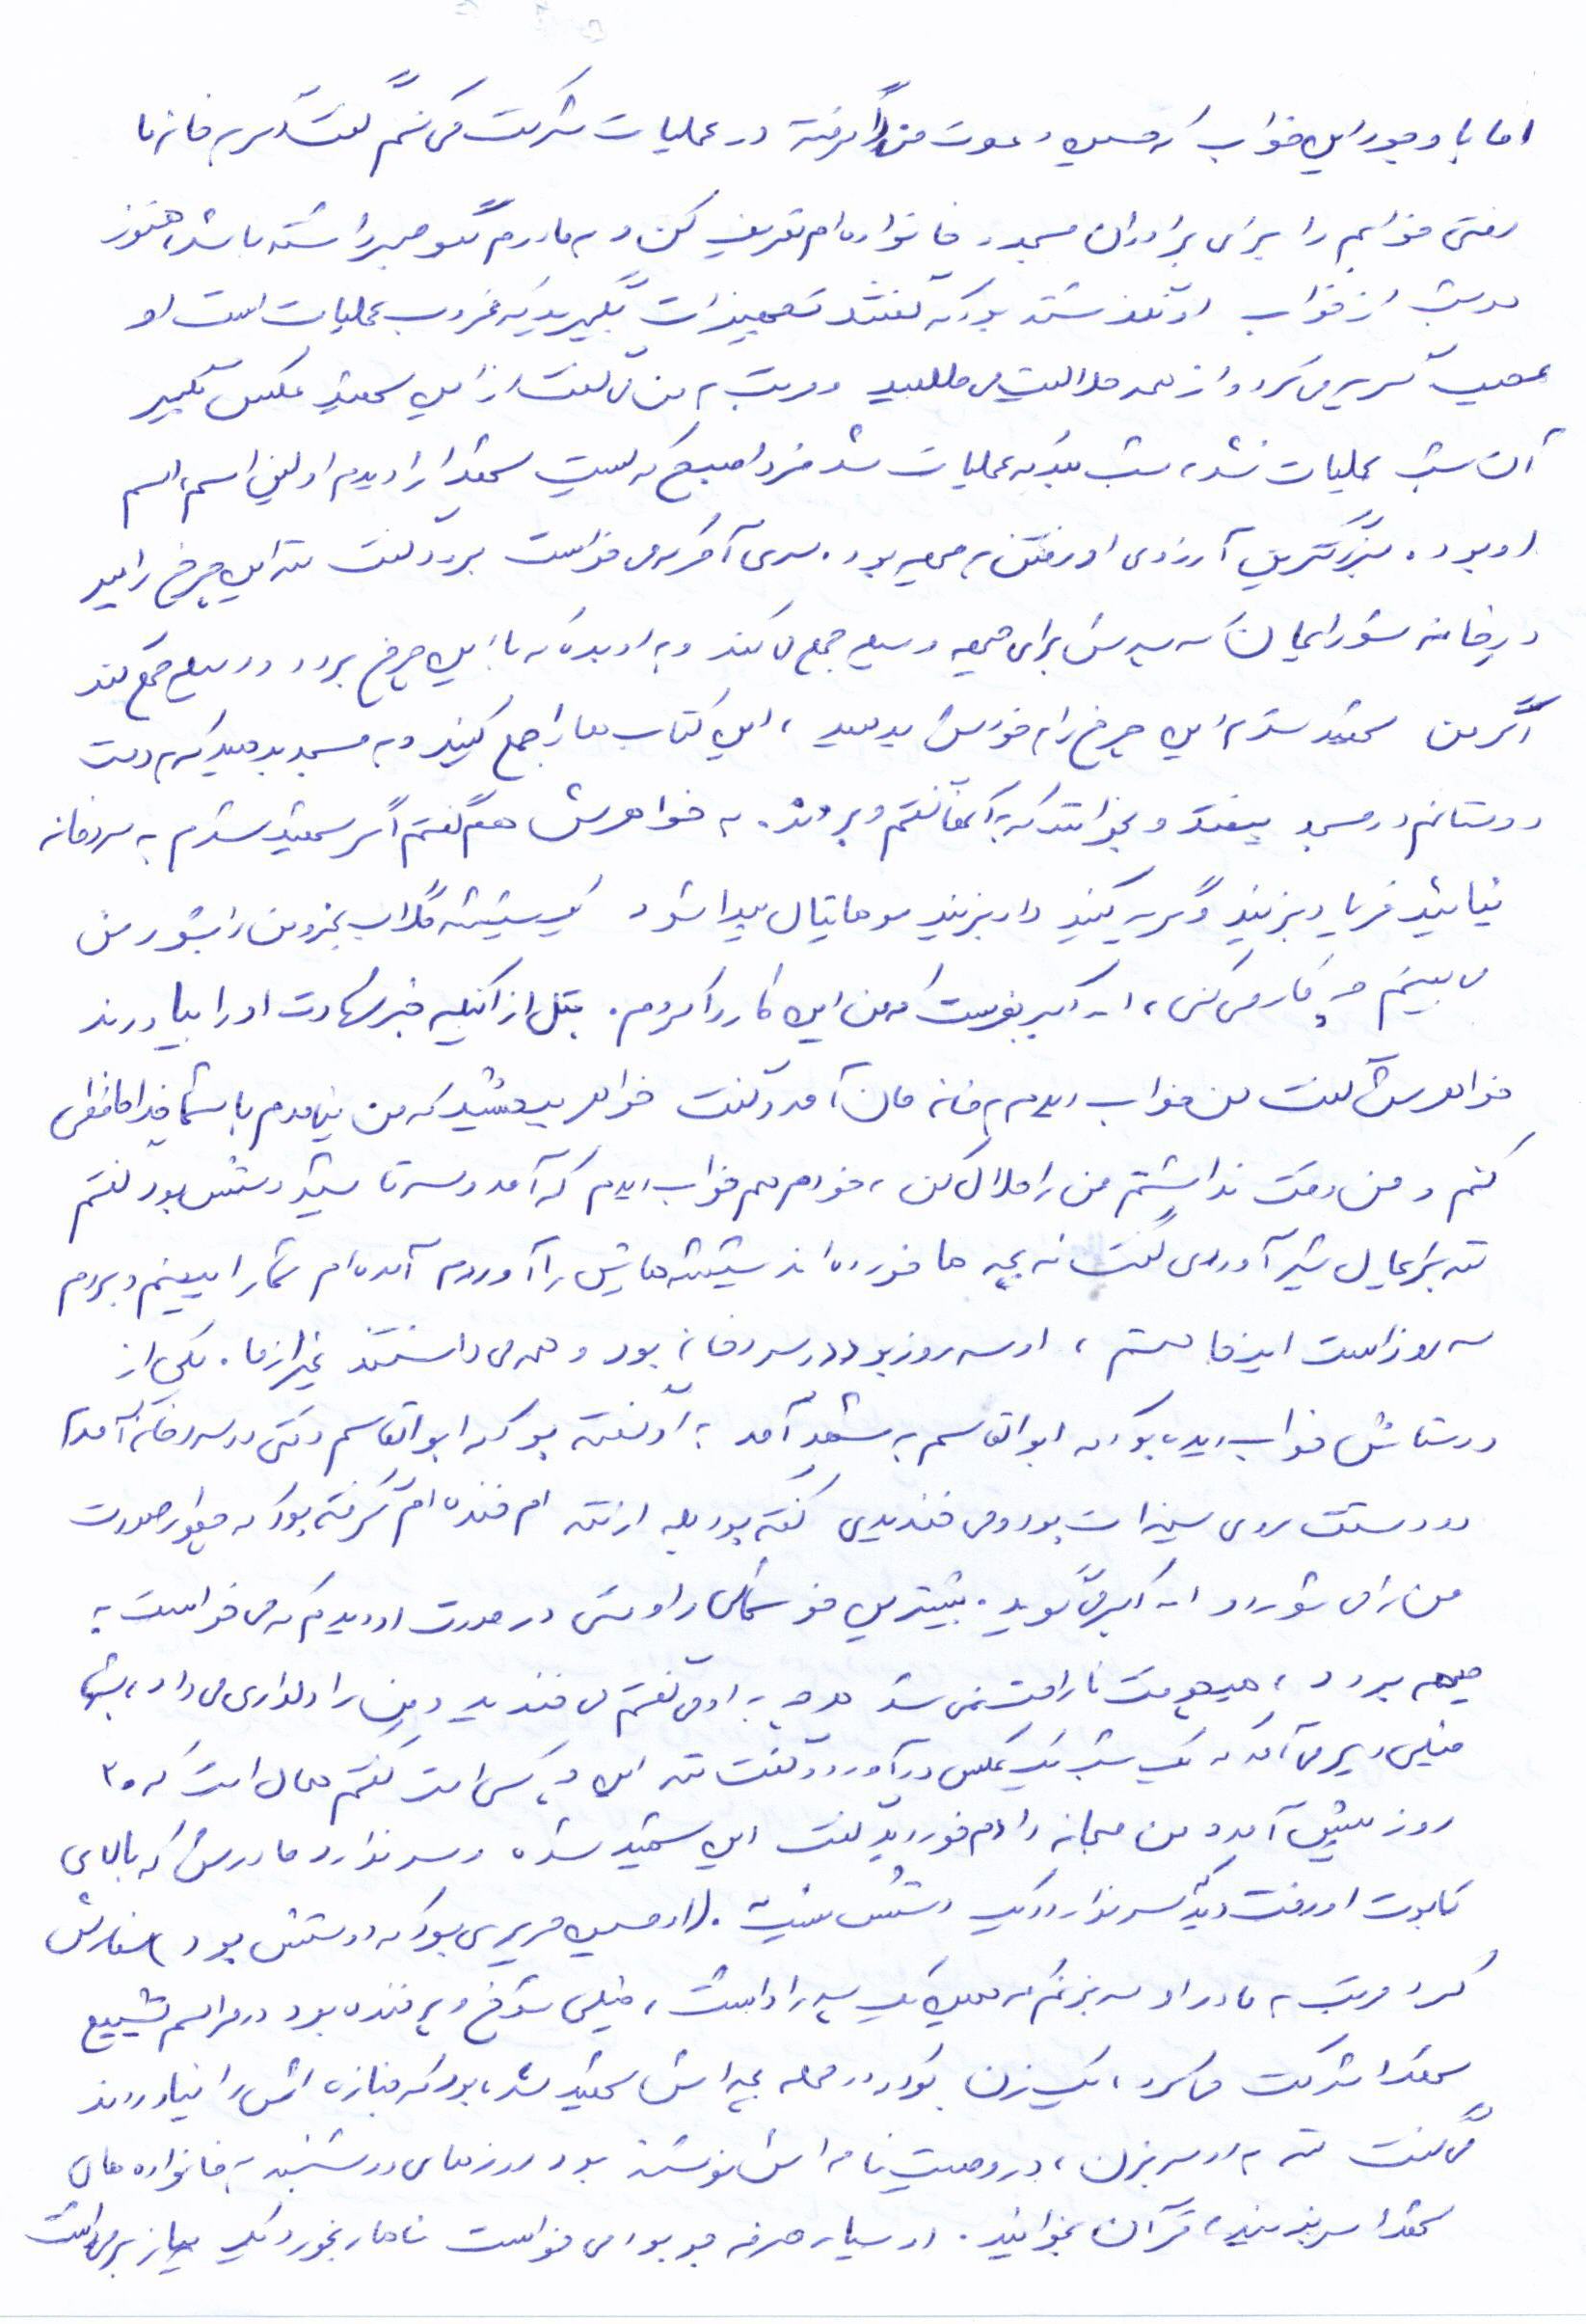 اما با وجود این خواب که حسین دعوت من را گرفته در عملیات شرکت می کنم گفت اکبر به خانه ما
رفتی خوابم را برای برادران مسجد و خانواده ام تعریف کن و به مادرم بگو صبر داشته باشد، هنوز
از خواب او نگذشته بود که گفتند تجهیزات بگیرید که غروب عملیات است او
عجیب گریه می کرد و از همه حلالیت می طلبید و مرتب به من می گفت از این شهید عکس بگیر
آن شب عملیات نشد، شب بعد که عملیات شد فردا صبح که لیست شهدا را دیدم اولین اسم، اسم
او بود. بزرگترین آرزوی او رفتن به جبهه بود. سری آخر که می خواست برود گفت ننه این چرخ را ببر
در خانه شورابجان که پسرش برای جبهه وسایل جمع می کند و به او بده که با این چرخ برود و وسایل جمع کند
اگر من شهید شدم این چرخ را به خودش بدهید، این کتاب ها را جمع کنید و به مسجد بدهید که به دست
دوستانم در مسجد بیفتد و بخوانند که به آنها گفتم و بردند. به خواهرش هم گفتم اگر شهید شدم به سردخانه
نیائید فریاد بزنید و گریه کنید داد بزنید موهایتان پیدا شود یک شیشه گلاب بخر و من را بشور من
می بینم چه کار می کنی، الله اکبر بفرست که من این کار را کردم. قبل از اینکه خبر شهادت او را بیاورند
خواهرش گفت من خواب دیدم به خانه مان آمد و گفت خواهر ببخشید که من نیامدم با شما خداحافظی
کنم و من وقت نداشتم من را حلال کن، خودم هم خواب دیدم که آمد و سه تا شیشه دستش بود گفتم
ننه برایمان شیر آوردی گفت نه بچه ها خورده اند شیشه هایش را آوردم آمده ام شما را ببینم و بروم
سه روز است اینجا هستم، او سه روز بود در سردخانه بود و همه می دانستند غیر از ما. یکی از
دوستانش خواب دیده بود که ابوالقاسم به مشهد آمد به او گفته بود که ابوالقاسم وقتی در سردخانه آمدم
دو دستت روی سینه ات بود و می خندیدی گفته بود بله از ننه ام خنده ام گرفته بود که چطور صورت
من را می شورد و الله اکبر می گوید. بیشترین خوشحالی را وقتی در صورت او دیدم که می خواست به
جبهه برود، هیچوقت ناراحت نمی شد هر چه به او می گفتم می خندید و من را دلداری می داد، شبها
خیلی دیر می آمد که یک شب یک عکس در آورد و گفت ننه این چه کسی است گفتم همان است که ۲۰
روز پیش آمد و من صبحانه دادم خوردید گفت این شهید شده و سر ندارد مادرش که بالای
تابوت او رفت دید سر ندارد و یک دستش نیست. (او حسین حریری بود که دوستش بود) سفارش
کرد مرتب به مادر او سر بزنم که همین یک پسر را داشت، خیلی شوخ و پر خنده بود در مراسم تشییع
شهدا شرکت می کرد، یک زن بود در محله بچه اش شهید شده بود که جنازه اش را نیاوردند
می گفت ننه به او سر بزن، در وصیت نامه اش نوشته بود روزهای دوشنبه به خانواده های
شهدا سر بزنید، قرآن بخوانید. او بسیار صرفه جو بود می خواست ناهار بخورد یک پیاز برمی داشت